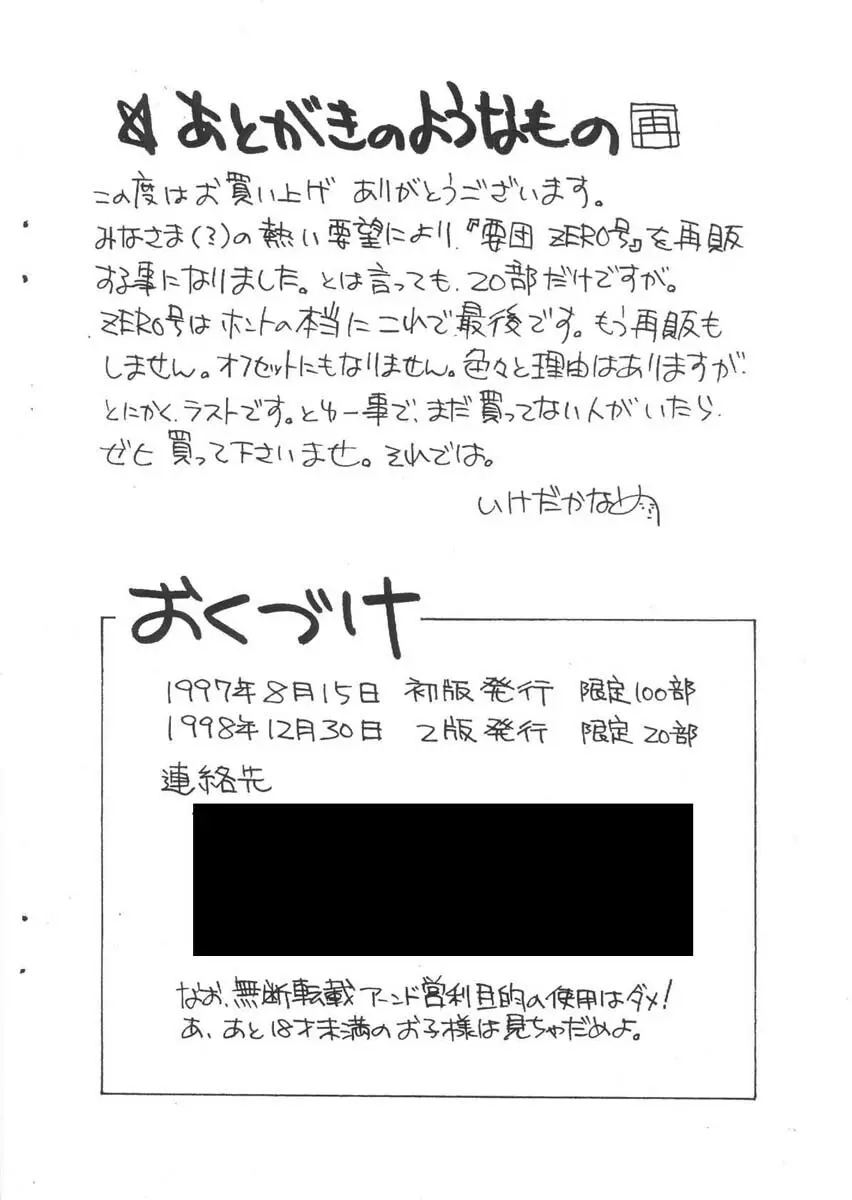 ☆ あとがきのようなもの 再
この度はお買い上げ ありがとうございます。
みなさま(?)の熱い要望により、『要団 ZERO号』を再販
する事になりました。とは言っても、20部だけですが。
ZERO号はホントの本当にこれで最後です。もう再販も
しません。オフセットにもなりません。色々と理由はありますが、
とにかく、ラストです。とゆー事で、まだ買ってない人がいたら、
ゼヒ買って下さいませ。それでは。
いけだかなめ
おくづけ
1997年8月15日 初版発行 限定100部
1998年12月30日 2版発行 限定20部
連絡先
なお、無断転載アーンド営利目的の使用はダメ!
あ、あと18才未満のお子様は見ちゃだめよ。